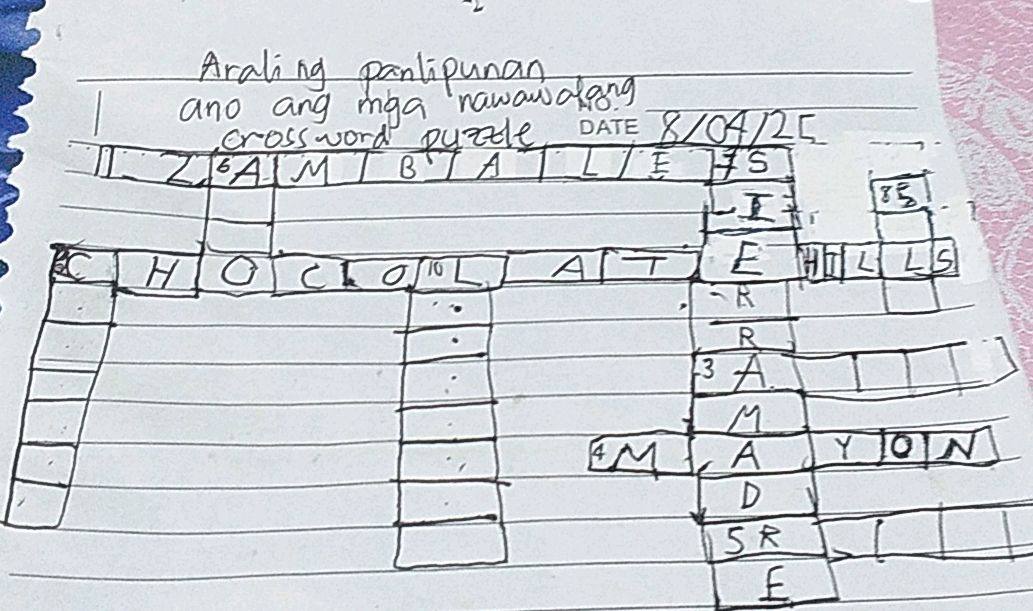 Araling panlipunan
ano ang mga nawawalang
crossword puzzle DATE 8/04/25
1 Z 6 A M B A L E 7 S
I
8 S
2 C H O C O 10 L A T E H I L L S
R
R
3 A
M
4 M A Y O N
D
5 R
E